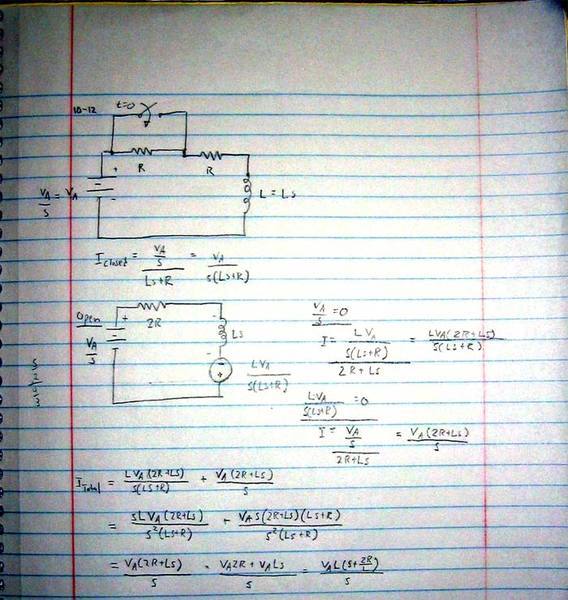 10-12 t=0
+ R R
V_A/S = V_A - L = Ls
I_closed = (V_A/S)/(Ls+R) = V_A/(S(Ls+R))
Open + 2R -
V_A/S Ls
- + LV_A/(S(Ls+R))
V_A/S = 0
I = (LV_A/(S(Ls+R)))/(2R+Ls) = LVA(2R+Ls)/(S(Ls+R))
LVA/(S(Ls+R)) = 0
I = (V_A/S)/(2R+Ls) = V_A(2R+Ls)/S
I_Total = LV_A(2R+Ls)/(S(Ls+R)) + V_A(2R+Ls)/S
= SLV_A(2R+Ls)/(S²(Ls+R)) + V_A S(2R+Ls)(Ls+R)/(S²(Ls+R))
= V_A(2R+Ls)/S = V_A2R + V_ALs/S = V_AL(S+2R/L)/S